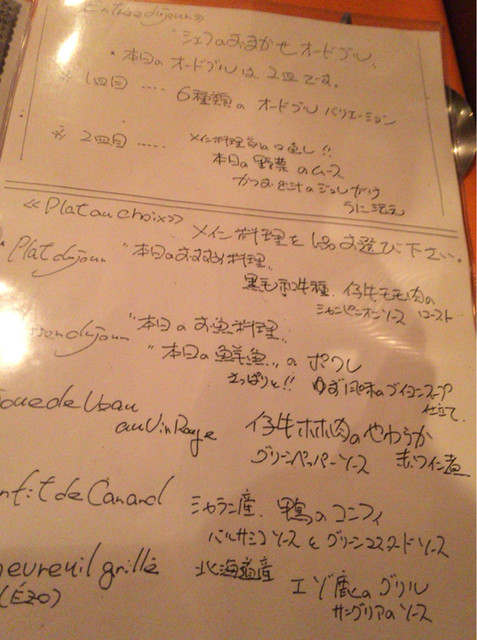 "シェフのおまかせオードブル"
・本日のオードブルは2皿です。
※1回目 ・・・・ 6種類のオードブルバリエーション
※2回目 ・・・・・ メイン料理前のお口直し!!
本日の野菜のムース
かつおだし汁のジュレがけ
うに添え
≪Plat au choix≫ メイン料理を1品お選び下さい。
Plat du jour "本日のおすすめ料理"
黒毛和牛種 仔牛モモ肉のロースト
シャンピニオンソース
"本日のお魚料理"
"本日の鮮魚"のポワレ
さっぱりと!! ゆず風味のブイヨンスープ仕立て
Joue de Veau au Vin Rouge 仔牛ホホ肉のやわらか赤ワイン煮
グリーンペッパーソース
Confit de Canard シャラン産 鴨のコンフィ
バルサミコソースとグリーンマスタードソース
Chevreuil grillé (ÉZO) 北海道産 エゾ鹿のグリル
サングリアのソース